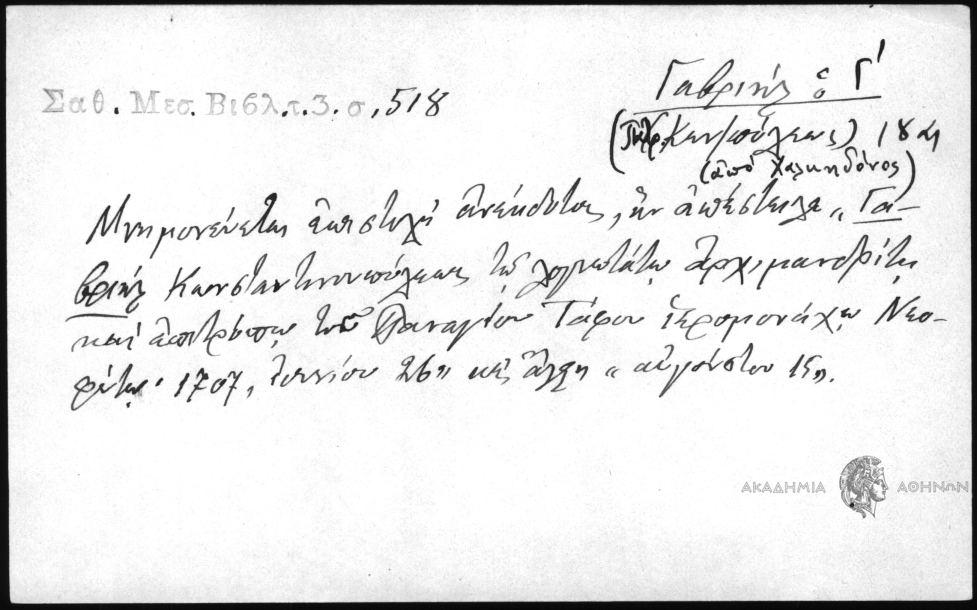 Σαθ. Μεσ. Βιβλ. τ. 3. σ, 518
Γαβριήλ ὁ Γ'
(Πατρ. Κων/πόλεως)
(ἀπό Χαλκηδόνος)
Μνημονεύεται ἐπιστολή ἀνέκδοτος, ἥν ἀπέστειλε „Γα-
βριήλ Κωνσταντινουπόλεως τῷ λογιωτάτῳ ἀρχιμανδρίτῃ
καί ἐπιτρόπῳ τοῦ Παναγίου Τάφου ἱερομονάχῳ Νεο-
φύτῳ· 1707, ἰουνίου 26„ καί ἄλλη „αὐγούστου 15„.
ΑΚΑΔΗΜΙΑ ΑΘΗΝΩΝ